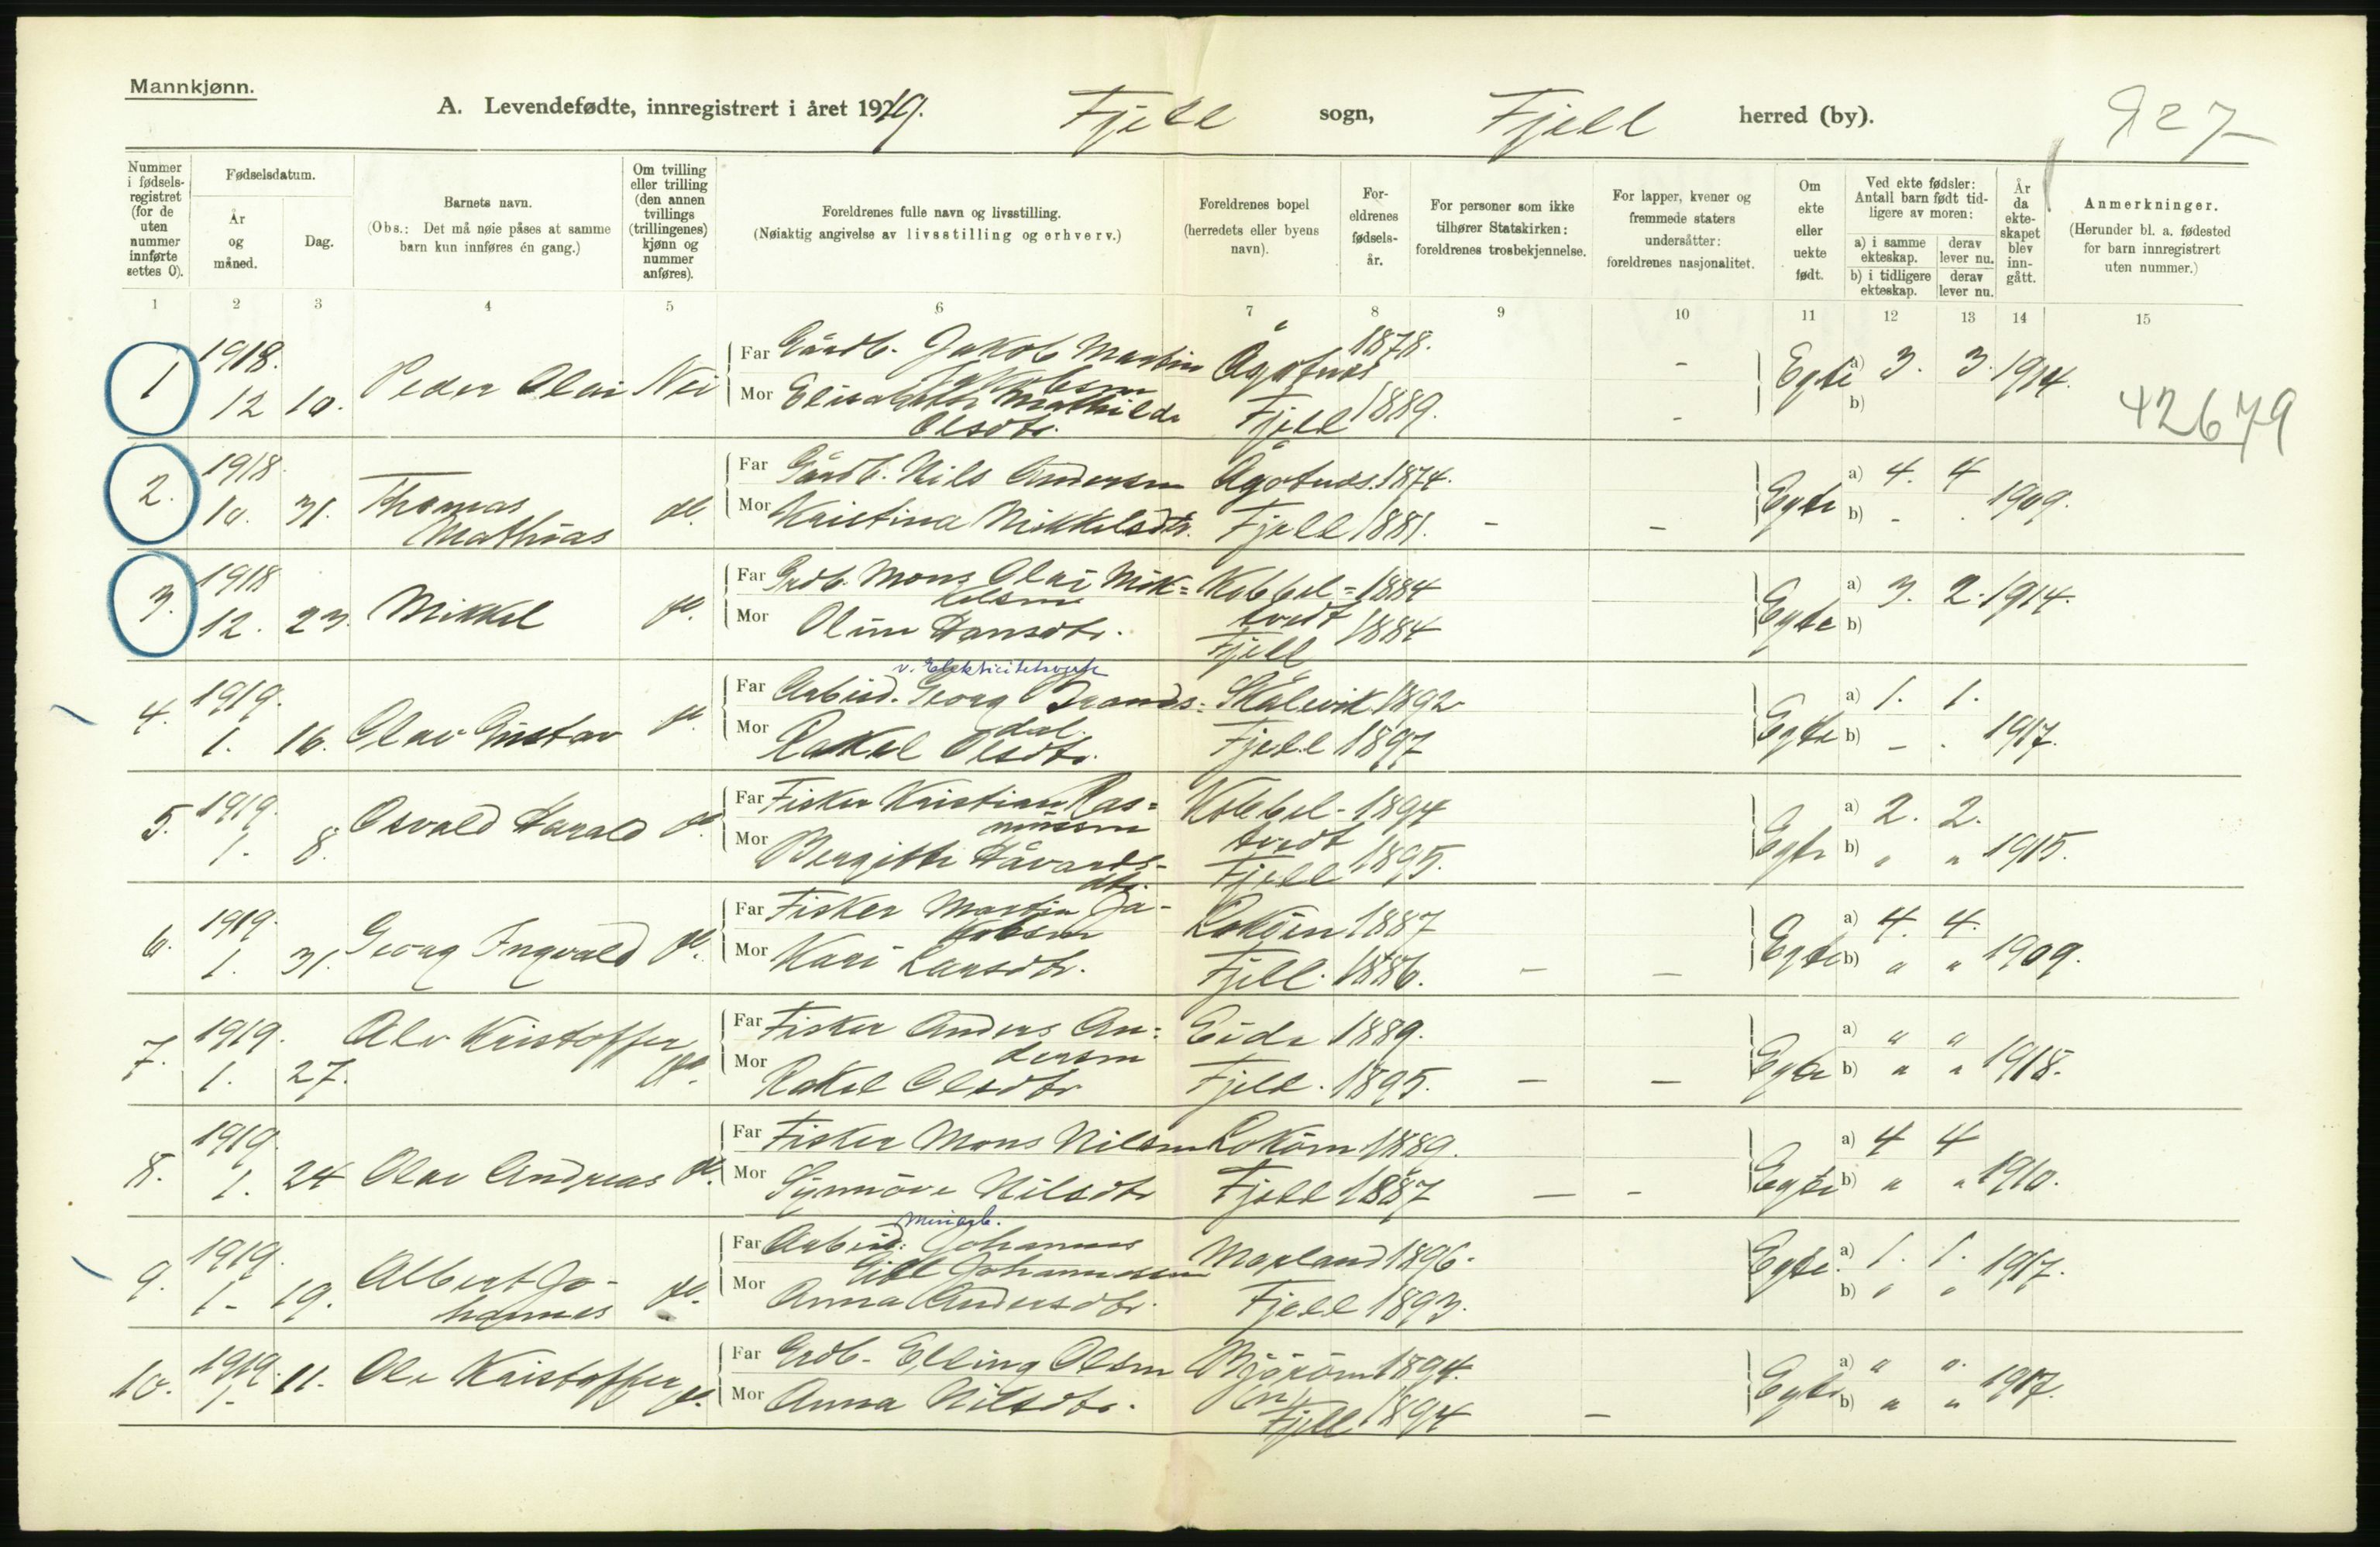 Mannkjønn.
A. Levendefødte, innregistrert i året 1919. Fjell sogn, Fjell herred (by). 927
Nummer i fødsels-registret (for de uten nummer innførte settes 0).
Fødselsdatum.
År og måned.
Dag.
Barnets navn.
(Obs.: Det må nøie påses at samme barn kun innføres én gang.)
Om tvilling eller trilling (den annen tvillings (trillingenes) kjønn og nummer anføres).
Foreldrenes fulle navn og livsstilling.
(Nøiaktig angivelse av livsstilling og erhverv.)
Foreldrenes bopel (herredets eller byens navn).
For-eldrenes fødsels-år.
For personer som ikke tilhører Statskirken: foreldrenes trosbekjennelse.
For lapper, kvener og fremmede staters undersåtter: foreldrenes nasjonalitet.
Om ekte eller uekte født.
Ved ekte fødsler: Antall barn født tid-ligere av moren:
a) i samme ekteskap. derav lever nu.
b) i tidligere ekteskap. derav lever nu.
År da ekte-skapet blev inn-gått.
Anmerkninger.
(Herunder bl. a. fødested for barn innregistrert uten nummer.)
1 2 3 4 5 6 7 8 9 10 11 12 13 14 15
1 1918. 12 10. Peder Olai Nei
Far Gårdb. Jakob Martin Jakobsen Ågotnes 1878. -
Mor Elisabeth Mathilde Olsdtr. Fjell 1889. -
Egte a) 3. 3. 1914.
b)
42679
2. 1918. 10. 31. Thomas Mathias do.
Far Gårdb. Nils Andersen Ågotnes. 1874.
Mor Kristina Mikkelsdtr. Fjell 1881. - -
Egte a) 4. 4 1909.
b) - .
3. 1918 12. 23. Mikkel do.
Far Grdb. Mons Olai Mik=kelsen Kobbel=tvedt 1884
Mor Oline Hansdtr. Fjell 1884
Egte a) 3. 2. 1914.
b)
4. 1919. 1. 16. Olav Gustav do.
v. Elektricitetsverk
Far Arbeid. Georg Brands=dal. Skålevik 1892
Mor Rakel Olsdtr. Fjell 1897
Egte a) 1. 1. 1917.
b) - .
5. 1919. 1. 8. Osvald Harald do.
Far Fisker Kristian Ras=mussen Kobbel-tvedt 1894
Mor Bergitte Håvards-dtr. Fjell 1895.
Egte a) 2. 2. 1915.
b) " "
6. 1919. 1. 31. Georg Ingvald do.
Far Fisker Martin Ja-kobsen Lokøen 1887
Mor Kari Larsdtr. Fjell. 1886. - -
Egte a) 4. 4. 1909.
b) " "
7. 1919. 1. 27. Alv Kristoffer do.
Far Fisker Anders An=dersen Eide 1889.
Mor Rakel Olsdtr Fjell. 1895. - -
Egte a) " " 1918.
b) " "
8. 1919. 1. 24 Olav Andreas do.
Far Fisker Mons Nilsen Lokøen 1889.
Mor Synnøve Nilsdtr Fjell 1887 - -
Egte a) 4 4 1910.
b) " "
9. 1919. 1- 19. Albert Jo-hannes do.
Minearb.
Far Arbeid: Johannes Johannessen Morland 1896.
Mor Anna Andersdtr. Fjell 1893.
Egte. a) 1. 1. 1917.
b) " "
10. 1919. 1- 11. Ole Kristoffer do.
Far Grdb. Elling Olsen Bjørøen 1894.
Mor Anna Nilsdtr. Fjell 1894 -
Egte a) " " 1917.
b) " "